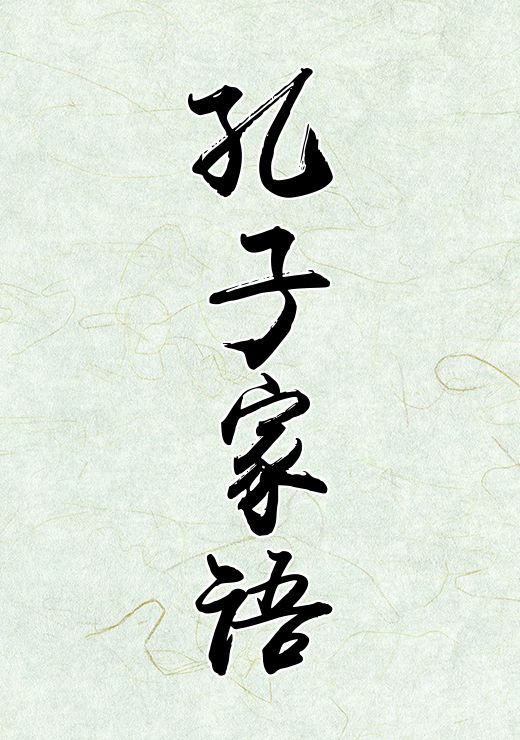 孔子家语